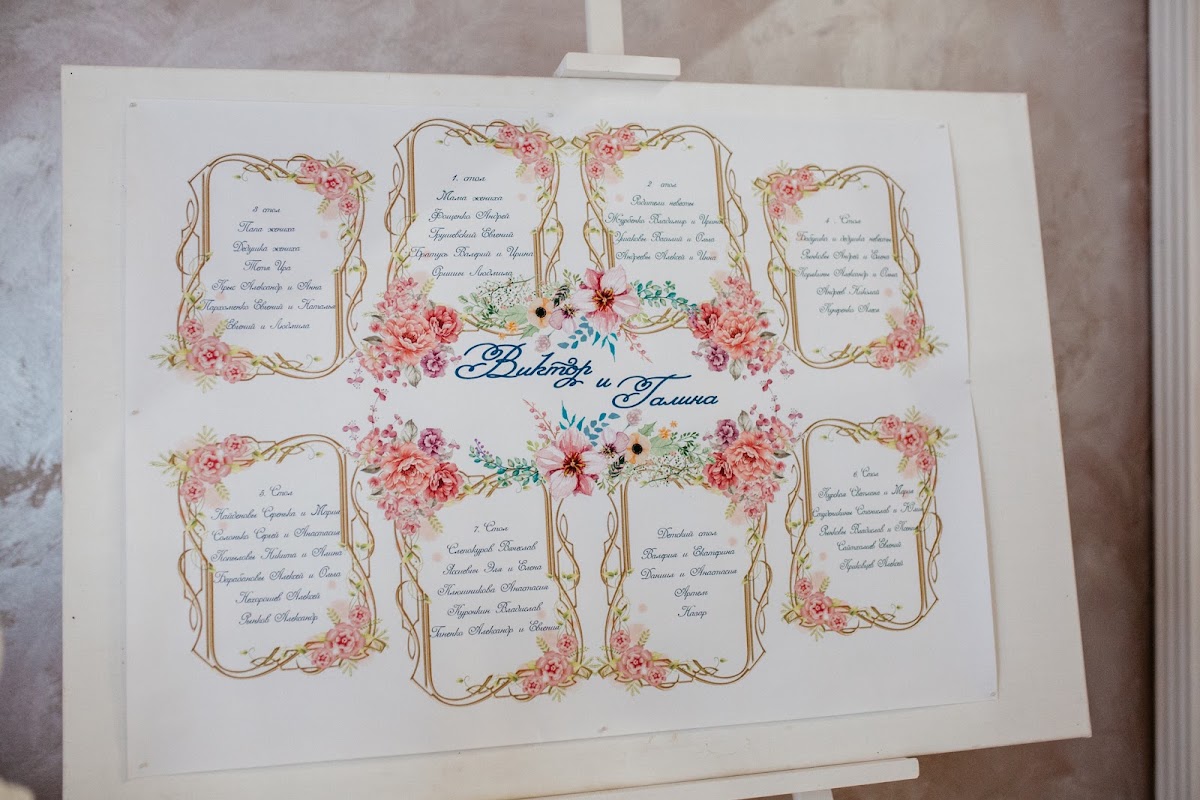 3 стол
Папа жениха
Дедушка жениха
Тетя Ира
Прыс Александр и Анна
Пархоменко Евгений и Наталья
Евгений и Людмила
1. стол
Мама жениха
Фощенко Андрей
Грушевский Евгений
Братусь Валерий и Ирина
Оришин Людмила
2 стол
Родители невесты
Журбенко Владимир и Ирина
Ушаковы Валерий и Ольга
Андреевы Алексей и Инна
4. Стол
Бабушка и дедушка невесты
Рыжковы Андрей и
Александр и Ольга
Андреев Николай
Кучеренко Алла
Виктор и Галина
5. Стол
Найденовы Серенька и Мария
Солонька Сергей и Анастасия
Копыловы Никита и Алина
Барабановы Алексей и Ольга
Нехорошев Алексей
Рыжков Александр
7. Стол
Слепокуров Вячеслав
Ясиевич Эля и Елена
Ключникова Анастасия
Куронкин Владислав
Ганенко Александр и Евгения
Детский стол
Валерия и Екатерина
Данила и Анастасия
Артем
Назар
6. Стол
Светлана и Мария
Станислав и
Рыжковы Владислав и
Евгений
Алексей